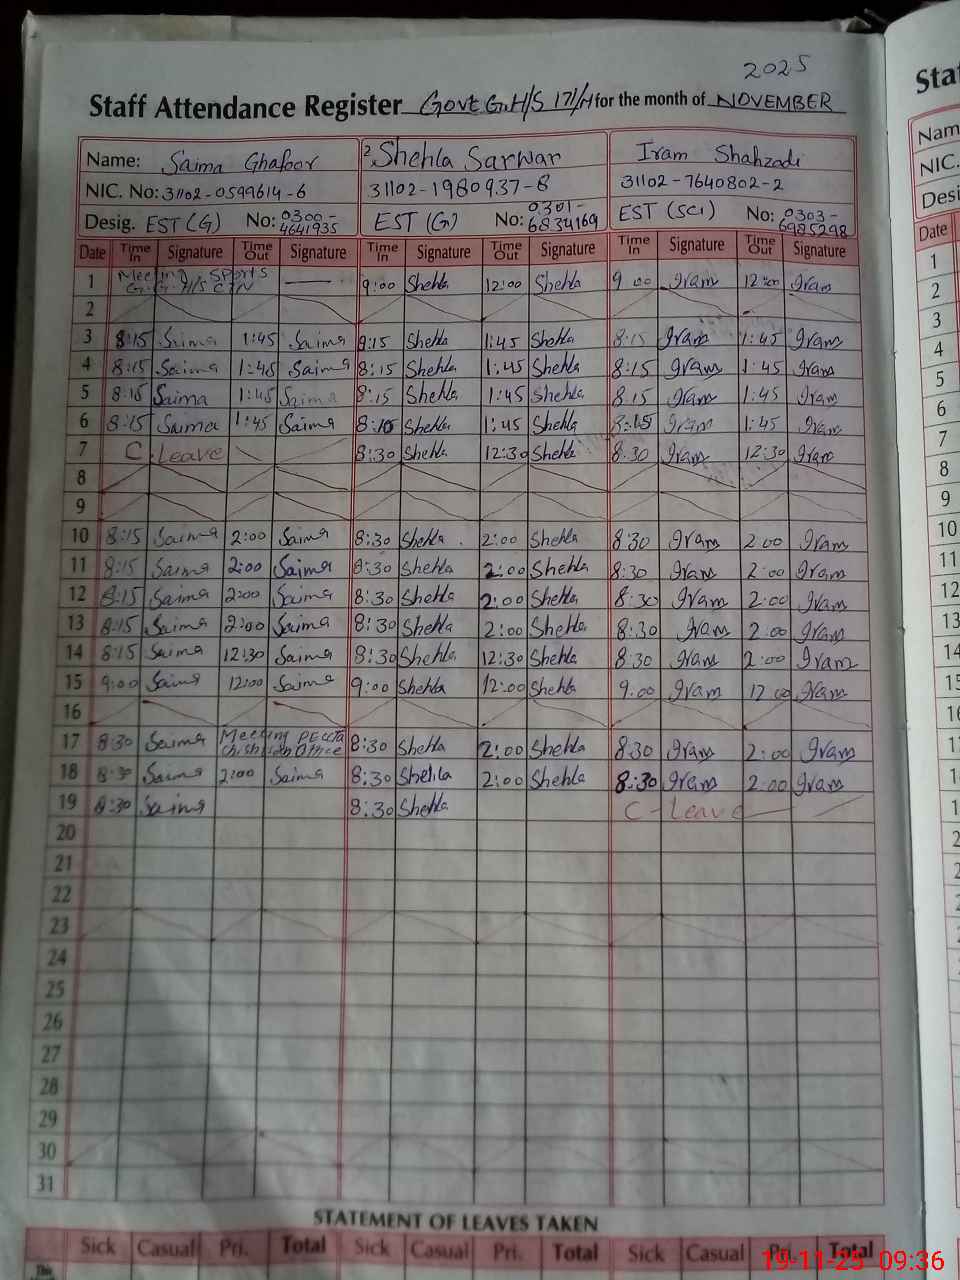 2025
Staff Attendance Register Govt G.H/S 171/H for the month of NOVEMBER
Name: Saima Ghafoor 2. Shehla Sarwar Iram Shahzadi
NIC. No: 31102-0599614-6 31102-1980937-8 31102-7640802-2
Desig. EST (G) No: 0300-4641935 EST (G) No: 0301-6834169 EST (SCI) No: 0303-6985298
Date Time In Signature Time Out Signature Time In Signature Time Out Signature Time In Signature Time Out Signature
1 Meeting, Sports G.G.H/S CTN — 9:00 Shehla 12:00 Shehla 9 00 Iram 12:00 Iram
2
3 8:15 Saima 1:45 Saima 8:15 Shehla 1:45 Shehla 8:15 Iram 1:45 Iram
4 8:15 Saima 1:45 Saima 8:15 Shehla 1:45 Shehla 8:15 Iram 1:45 Iram
5 8:15 Saima 1:45 Saima 8:15 Shehla 1:45 Shehla 8 15 Iram 1:45 Iram
6 8:15 Saima 1:45 Saima 8:15 Shehla 1:45 Shehla 8:15 Iram 1:45 Iram
7 C. Leave 8:30 Shehla 12:30 Shehla 8:30 Iram 12:30 Iram
8
9
10 8:15 Saima 2:00 Saima 8:30 Shehla 2:00 Shehla 8:30 Iram 2 00 Iram
11 8:15 Saima 2:00 Saima 8:30 Shehla 2:00 Shehla 8:30 Iram 2:00 Iram
12 8:15 Saima 2:00 Saima 8:30 Shehla 2:00 Shehla 8:30 Iram 2:00 Iram
13 8:15 Saima 2:00 Saima 8:30 Shehla 2:00 Shehla 8:30 Iram 2:00 Iram
14 8:15 Saima 12:30 Saima 8:30 Shehla 12:30 Shehla 8:30 Iram 2:00 Iram
15 9:00 Saima 12:00 Saima 9:00 Shehla 12:00 Shehla 9:00 Iram 12 00 Iram
16
17 8:30 Saima Meeting Chishtian Office 8:30 Shehla 2:00 Shehla 8:30 Iram 2:00 Iram
18 8:30 Saima 2:00 Saima 8:30 Shehla 2:00 Shehla 8:30 Iram 2:00 Iram
19 8:30 Saima 8:30 Shehla C-Leave
20
21
22
23
24
25
26
27
28
29
30
31
STATEMENT OF LEAVES TAKEN
Sick Casual Pri. Total Sick Casual Pri. Total Sick Casual Pri. Total
19-11-25 09:36
Name
NIC.
Date
1
2
3
4
5
6
7
8
9
10
11
12
13
14